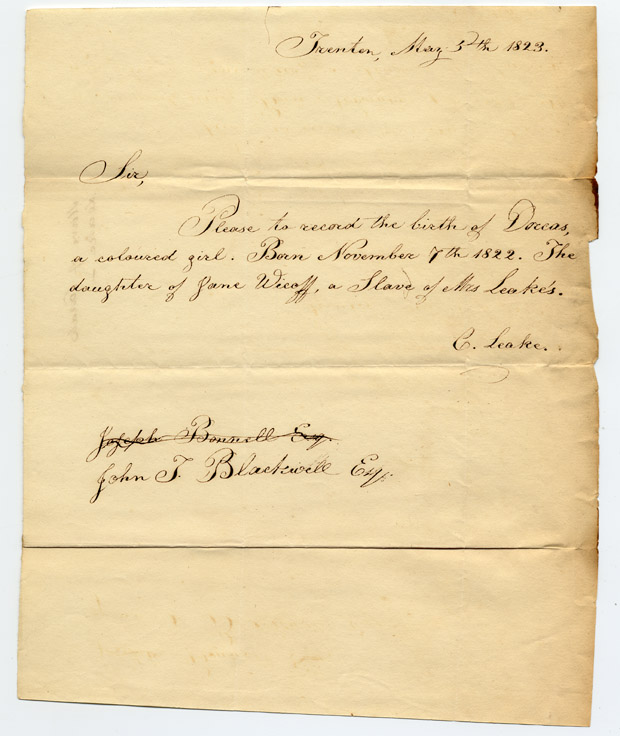 Trenton, May 5th 1823.
Sir,
Please to record the birth of Dorcas,
a coloured girl. Born November 7th 1822. The
daughter of Jane Wicoff, a Slave of Mrs Leake's.
C. Leake.
Joseph Bonnell Esq.
John T. Blackwell Esq.